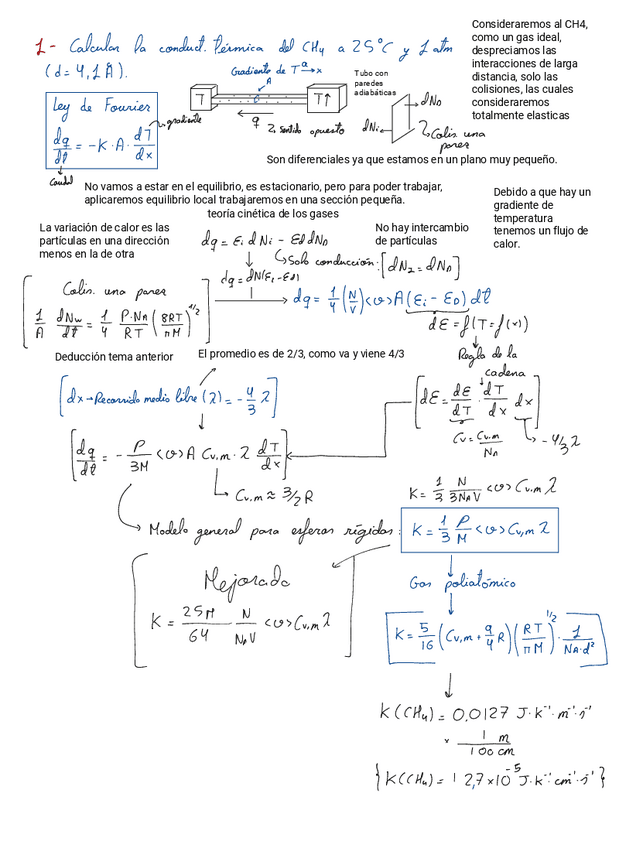 1- Calcular la conduct. térmica del CH4 a 25°C y 1 atm
(d= 4,1 Å).
Consideraremos al CH4,
como un gas ideal,
despreciamos las
interacciones de larga
distancia, solo las
colisiones, las cuales
consideraremos
totalmente elasticas
Gradiente de T
x
A
T
T↑
q
2, sentido opuesto
Tubo con
paredes
adiabáticas
dNi
dND
Colis. una
pared
Ley de Fourier
dq/dt = -K·A· dT/dx
gradiente
Caudal
Son diferenciales ya que estamos en un plano muy pequeño.
No vamos a estar en el equilibrio, es estacionario, pero para poder trabajar,
aplicaremos equilibrio local trabajaremos en una sección pequeña.
Debido a que hay un
gradiente de
temperatura
tenemos un flujo de
calor.
teoría cinética de los gases
La variación de calor es las
partículas en una dirección
menos en la de otra
dq = Ei dNi - ED dND
No hay intercambio
de partículas
Solo conducción: [dNi = dND]
dq = dN(Ei - ED)
Colis. una pared
1/A dNw/dt = 1/4 P·NA/RT (8RT/πM)^1/2
dq = 1/4 (N/V) <v> A (Ei - ED) dt
dE = f(T = f(x))
Regla de la
cadena
Deducción tema anterior
El promedio es de 2/3, como va y viene 4/3
[dx → Recorrido medio libre (λ) = -4/3 λ]
[dE = dE/dT · dT/dx dx]
Cv = Cv,m/NA
-4/3 λ
[dq/dt = - P/3M <v> A Cv,m · λ dT/dx]
Cv,m ≈ 3/2 R
K = 1/3 N/3NAV <v> Cv,m λ
Modelo general para esferas rígidas:
K = 1/3 P/M <v> Cv,m λ
Mejorada
K = 25π/64 N/NAV <v> Cv,m λ
Gas poliatómico
K = 5/16 (Cv,m + 9/4 R) (RT/πM)^1/2 · 1/NA·d²
K(CH4) = 0,0127 J·K⁻¹·m⁻¹·s⁻¹
× 1 m/100 cm
{K(CH4) = 12,7×10⁻⁵ J·K⁻¹·cm⁻¹·s⁻¹}